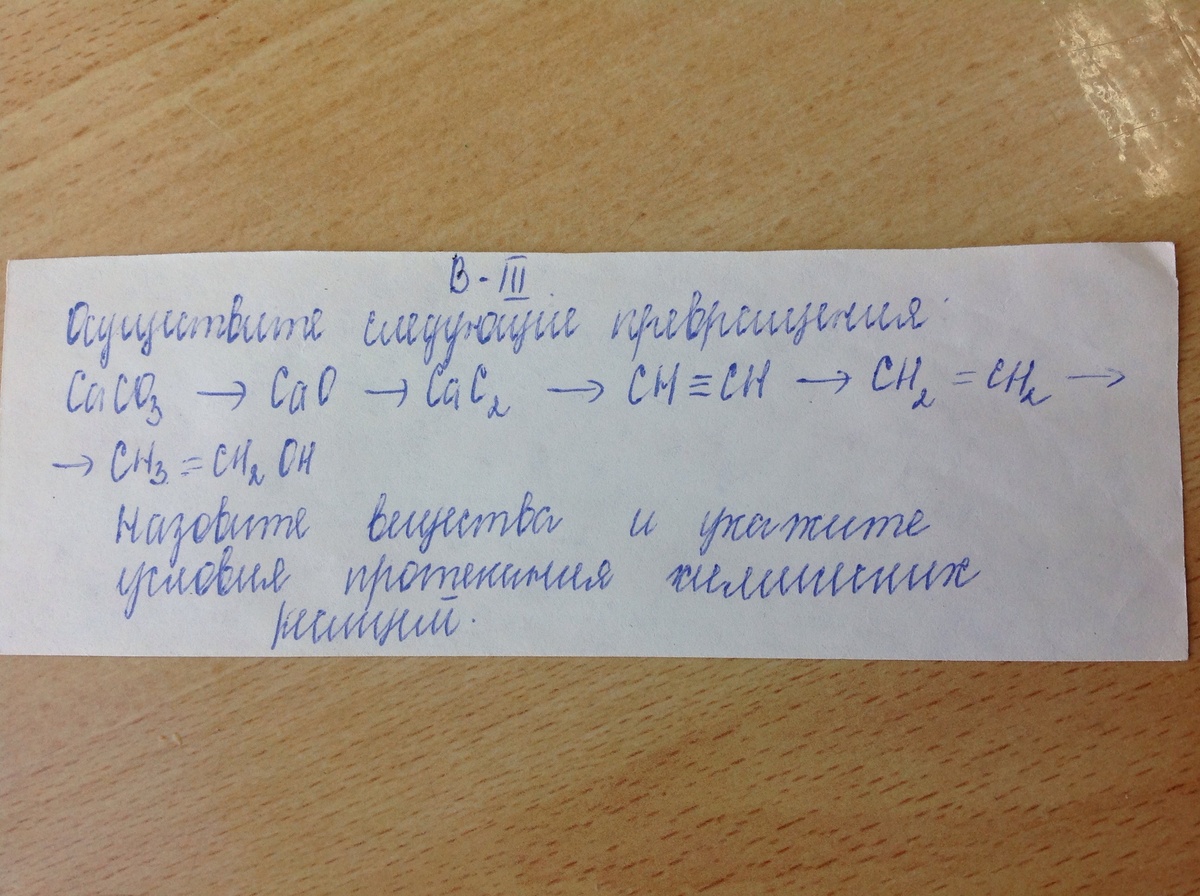 В-III
Осуществите следующие превращения:
CaCO₃ → CaO → CaC₂ → CH≡CH → CH₂=CH₂ →
→ CH₃=CH₂OH
Назовите вещества и укажите
условия протекания химических
реакций.